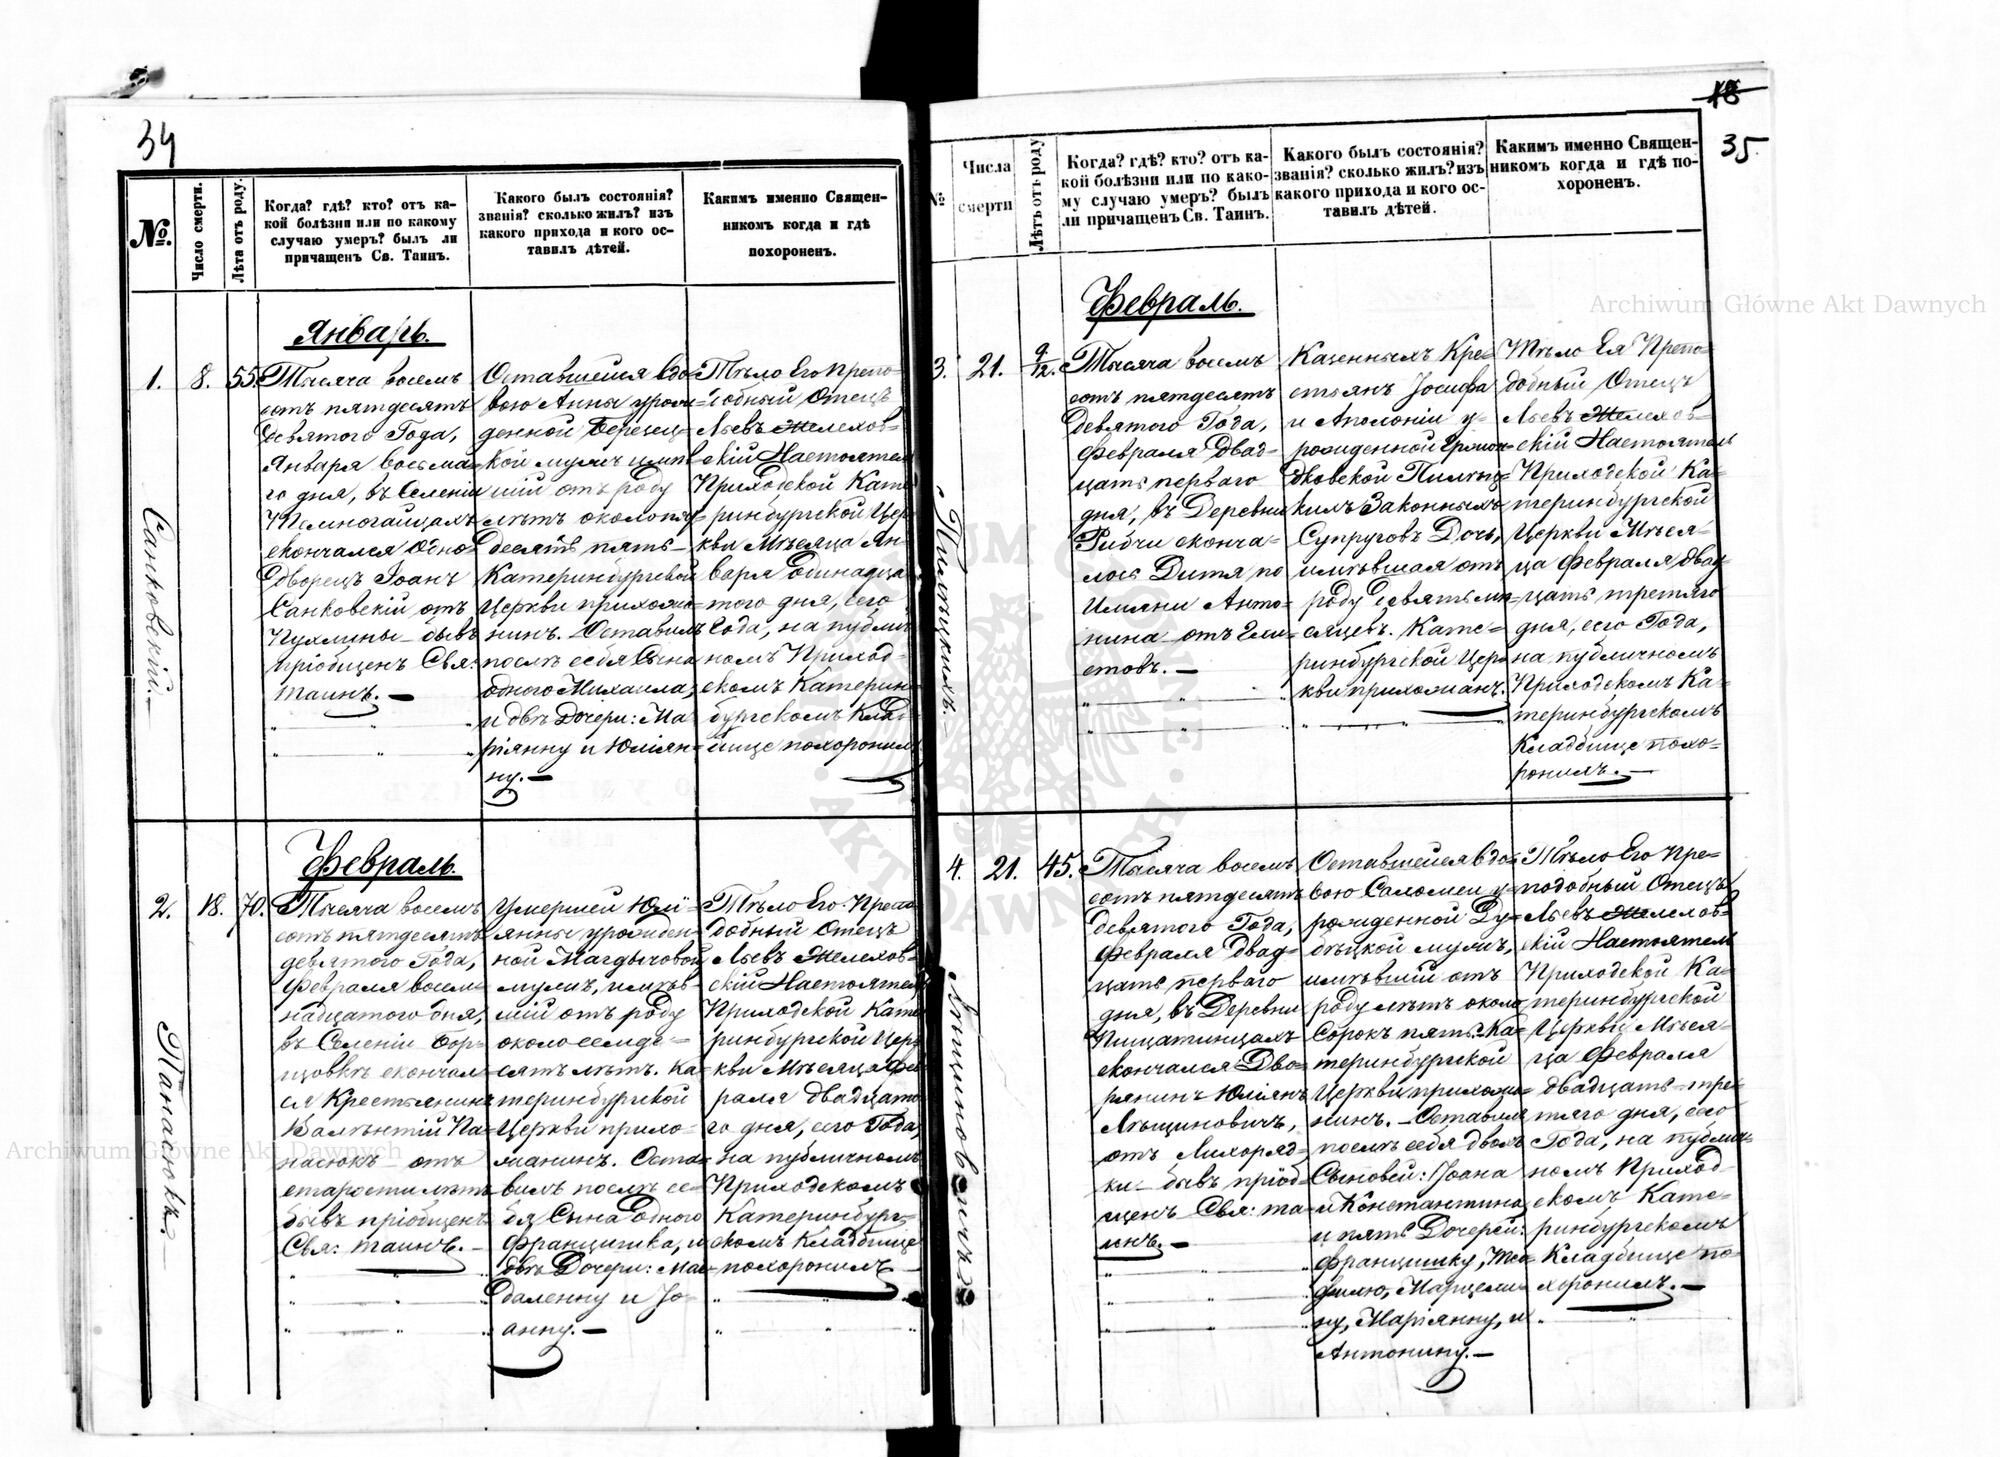 34
№.
Число смерти.
Лѣта отъ роду.
Когда? гдѣ? кто? отъ ка-
кой болѣзни или по какому
случаю умеръ? былъ ли
причащенъ Св. Таинъ.
Какого былъ состоянія?
званія? сколько жилъ? изъ
какого прихода и кого ос-
тавилъ дѣтей.
Какимъ именно Священ-
никомъ когда и гдѣ
похороненъ.
Январь.
1.
Санковскій.
8.
55.
Тысяча восемъ
сотъ пятдесятъ
девятого Года,
Января восьма-
го дня, въ Селеніи
скончался Одно-
дворецъ Іоанъ
Санковскій отъ
Пухлины бывъ
пріобщенъ Свя:
таинъ. —
Оставшейся вдо-
вою Анны урож-
денной Березец-
кой мужъ имѣв-
шій отъ роду
лѣтъ около пят-
десятъ пять
Катеринбургской
Церкви прихожа-
нинъ. Оставилъ
послѣ себя Сына
одного Михаила,
и двѣ Дочери: Ма-
ріянну и Юліян-
ну. —
Тѣло Его Препо-
добный Отецъ
Львъ Желехов-
скій Настоятель
Приходской Кате-
ринбургской Цер-
кви Мѣсяца Ян-
варя Одинадца-
того дня, сего
Года, на публич-
номъ Приход-
скомъ Катерин-
бургскомъ Клад-
бище похоронилъ
Февраль.
2.
Панасюкъ.
18.
70.
Тысяча восемъ
сотъ пятдесятъ
девятого Года,
Февраля восем-
надцатого дня,
въ Селеніи Бор-
щовкѣ скончал-
ся Крестьянинъ
Валѣнтій Па-
насюкъ отъ
старости лѣтъ
бывъ пріобщенъ
Свя: таинъ. —
Умершей Юлі-
янны урожден-
ной Магдычовой
мужъ, имѣв-
шій отъ роду
около семде-
сятъ лѣтъ. Ка-
теринбургской
Церкви прихо-
жанинъ. Оста-
вилъ послѣ се-
бя Сына Одного
Францишка, и
двѣ Дочери: Маг-
даленну и Іо-
анну. —
Тѣло Его Препо-
добный Отецъ
Львъ Желехов-
скій Настоятель
Приходской Кате-
ринбургской Цер-
кви Мѣсяца Фев-
раля двадцато-
го дня, сего Года,
на публичномъ
Приходскомъ
Катеринбург-
скомъ Кладбище
похоронилъ
18
35.
№
Числа
смерти
Лѣтъ отъ роду
Когда? гдѣ? кто? отъ ка-
кой болѣзни или по како-
му случаю умеръ? былъ
ли причащенъ Св. Таинъ.
Какого былъ состоянія?
званія? сколько жилъ? изъ
какого прихода и кого ос-
тавилъ дѣтей.
Какимъ именно Священ-
никомъ когда и гдѣ по-
хороненъ.
Февраль.
3.
21.
9/12.
Тысяча восемъ
сотъ пятдесятъ
девятого Года,
Февраля Двад-
цать перваго
дня, въ Деревни
Рибчи сконча-
лось Дитя по
Имяни Анто-
нина отъ Гли-
стовъ. —
Казенныхъ Кре-
стьянъ Іосифа
и Аполоніи у-
рожденной
Законныхъ
Супруговъ Дочь,
имѣвшая отъ
роду девять мѣ-
сяцевъ. Кате-
ринбургской Цер-
кви прихожанъ.
Тѣло Ея Препо-
добный Отецъ
Львъ Желехов-
скій Настоятель
Приходской Ка-
теринбургской
Церкви Мѣся-
ца Февраля двад-
цать третяго
дня, сего Года,
на публичномъ
Приходскомъ Ка-
теринбургскомъ
Кладбище похо-
ронилъ. —
4.
21.
45.
Тысяча восемъ
сотъ пятдесятъ
девятого Года,
Февраля двад-
цать перваго
дня, въ Деревни
скончался Дво-
рянинъ Юліянъ
Лѣщиновичъ,
отъ Лихорад-
ки бывъ пріоб-
щенъ Свя: та-
инъ. —
Оставшейся вдо-
вою Саломеи у-
рожденной Ду-
бѣцкой мужъ,
имѣвшій отъ
роду лѣтъ около
Сорокъ пять. Ка-
теринбургской
Церкви прихожа-
нинъ. Оставилъ
послѣ себя двохъ
Сыновей: Іоана
и Константина,
и пять Дочерей:
Францишку, Тео-
филю, Марцели-
ну, Маріянну, и
Антонину. —
Тѣло Его Пре-
подобный Отецъ
Львъ Желехов-
скій Настоятель
Приходской Ка-
теринбургской
Церкви Мѣся-
ца Февраля
двадцать тре-
тяго дня, сего
Года, на публич-
номъ Приход-
скомъ Кате-
ринбургскомъ
Кладбище по-
хоронилъ. —
Archiwum Główne Akt Dawnych
Archiwum Główne Akt Dawnych